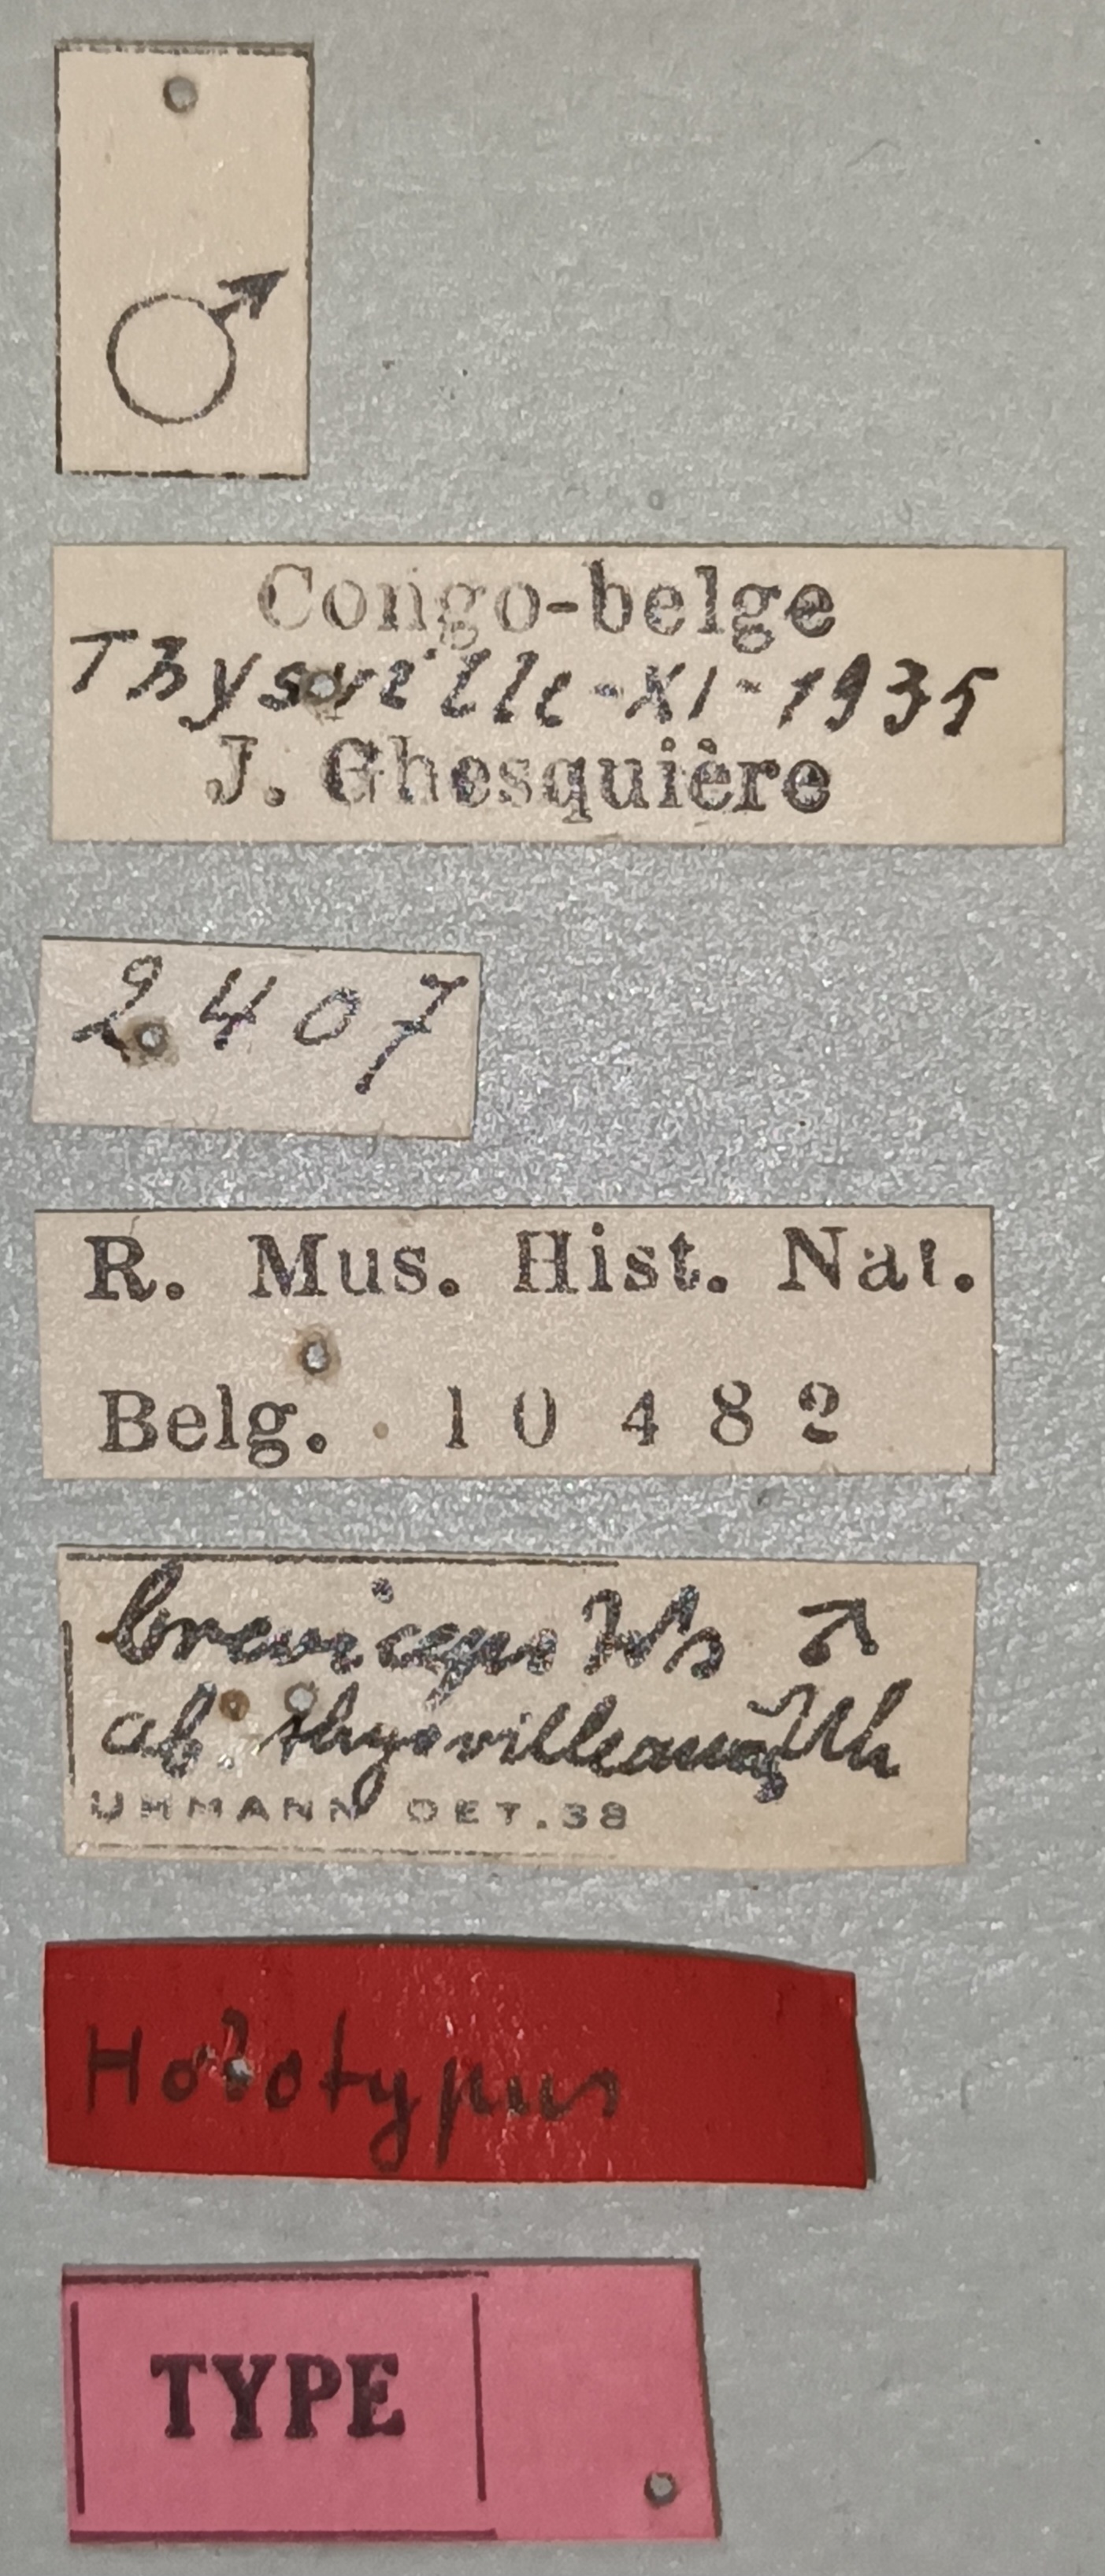 ♂
Congo-belge
Thysville-XI-1935
J. Ghesquière
2407
R. Mus. Hist. Nat.
Belg. 10482
breviceps Ws ♂
ab. thysvilleana Uh
UHMANN DET.38
Holotypus
TYPE